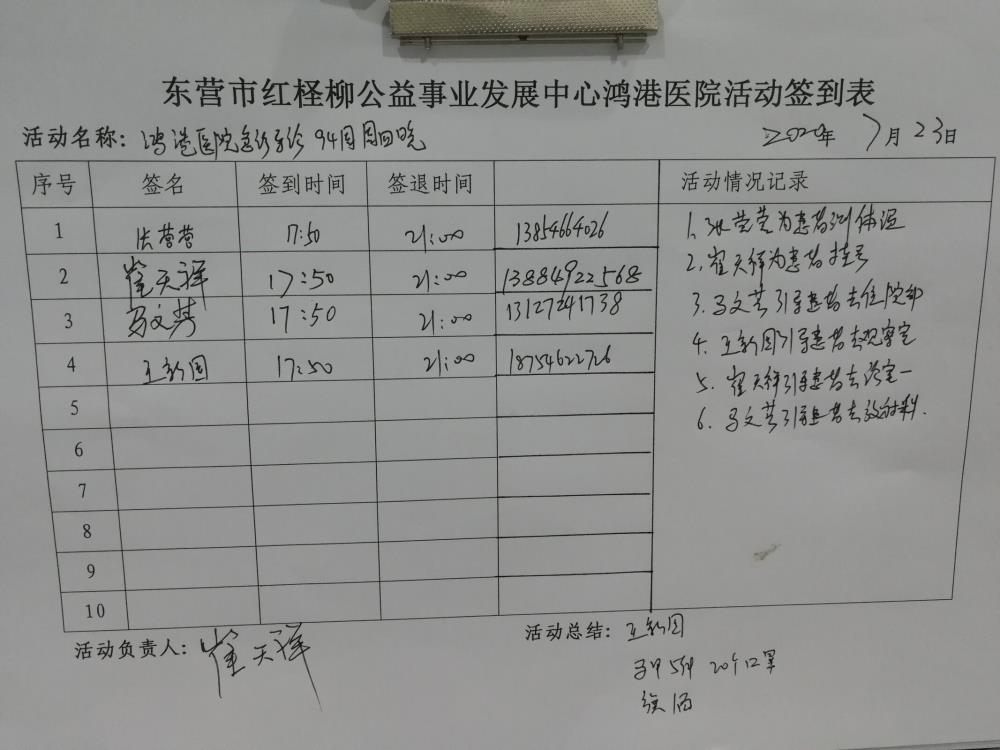 东营市红柽柳公益事业发展中心鸿港医院活动签到表
活动名称：鸿港医院急诊导诊 94周周四晚
2020年7月23日
序号 签名 签到时间 签退时间 活动情况记录
1 张营营 17:50 21:00 13854664026
2 崔天祥 17:50 21:00 13884922568
3 马文芳 17:50 21:00 13127241738
4 王新国 17:50 21:00 18754622726
5
6
7
8
9
10
1、张营营为患者测体温
2、崔天祥为患者挂号
3、马文芳引导患者去住院部
4、王新国引导患者去观察室
5、崔天祥引导患者去诊室一
6、马文芳引导患者去放射科.
活动负责人：崔天祥
活动总结：王新国
20个口罩